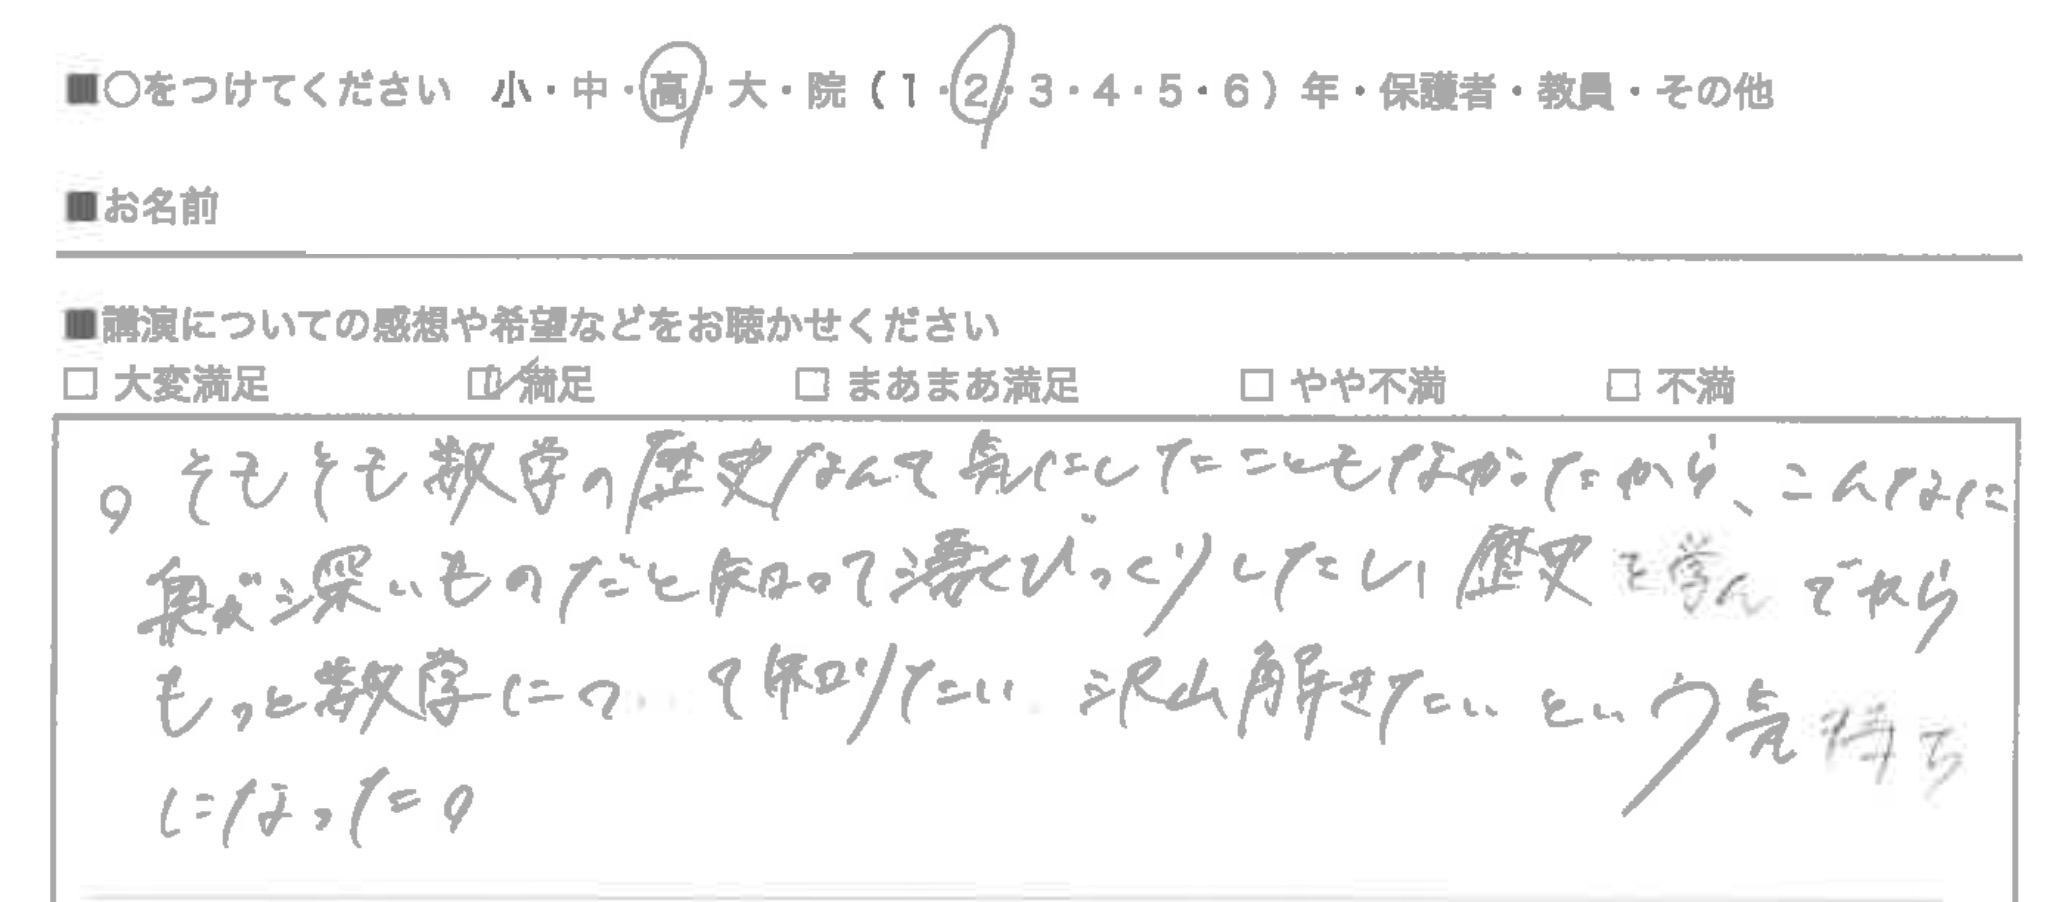 ■○をつけてください 小・中・高・大・院（1・2・3・4・5・6）年・保護者・教員・その他
■お名前
■講演についての感想や希望などをお聴かせください
□ 大変満足 □ 満足 □ まあまあ満足 □ やや不満 □ 不満
。そもそも数学の歴史なんて気にしたこともなかったから、こんなに
奥が深いものだと知って凄くびっくりしたし、歴史を学んでから
もっと数学について知りたい 沢山解きたいという気持ち
になった。